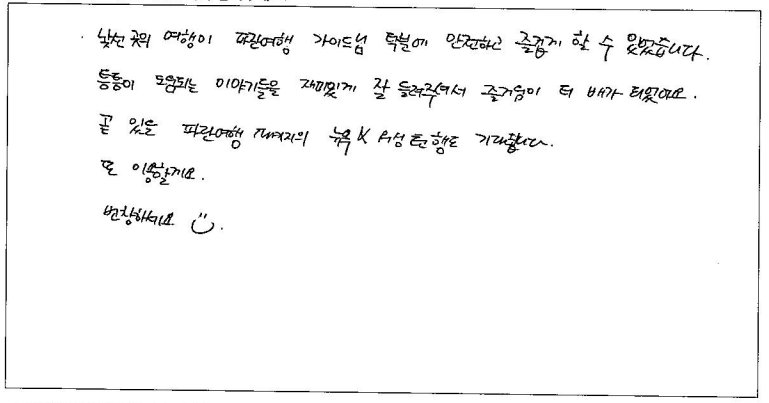 낯선 곳의 여행이 파란여행 가이드님 덕분에 안전하고 즐겁게 할 수 있었습니다.
틈틈이 도움되는 이야기들을 재미있게 잘 들려주셔서 즐거움이 더 배가 되었어요.
곧 있을 파란여행 패키지의 뉴욕 K 탐행도 기대됩니다.
또 이용할게요.
번창하세요 :)